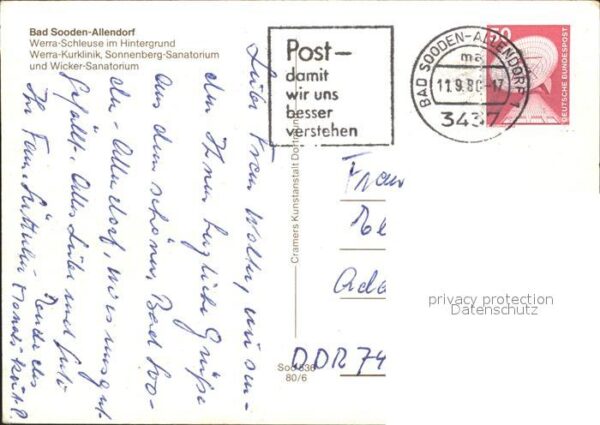 Bad Sooden-Allendorf
Werra-Schleuse im Hintergrund
Werra-Kurklinik, Sonnenberg-Sanatorium
und Wicker-Sanatorium
Post-
damit
wir uns
besser
verstehen
BAD SOODEN-ALLENDORF 1
ma
11.9.80-17
3437
50
DEUTSCHE BUNDESPOST
Liebe Frau Wolter, wir sen-
den Ihnen herzliche Grüße
aus dem schönen Bad Soo-
den-Allendorf, wo es uns gut
gefällt. Alles Liebe und Gute
Ihr Fam.
Cramers Kunstanstalt Dortmund
Frau
Ada
DDR 74
80/6
privacy protection
Datenschutz